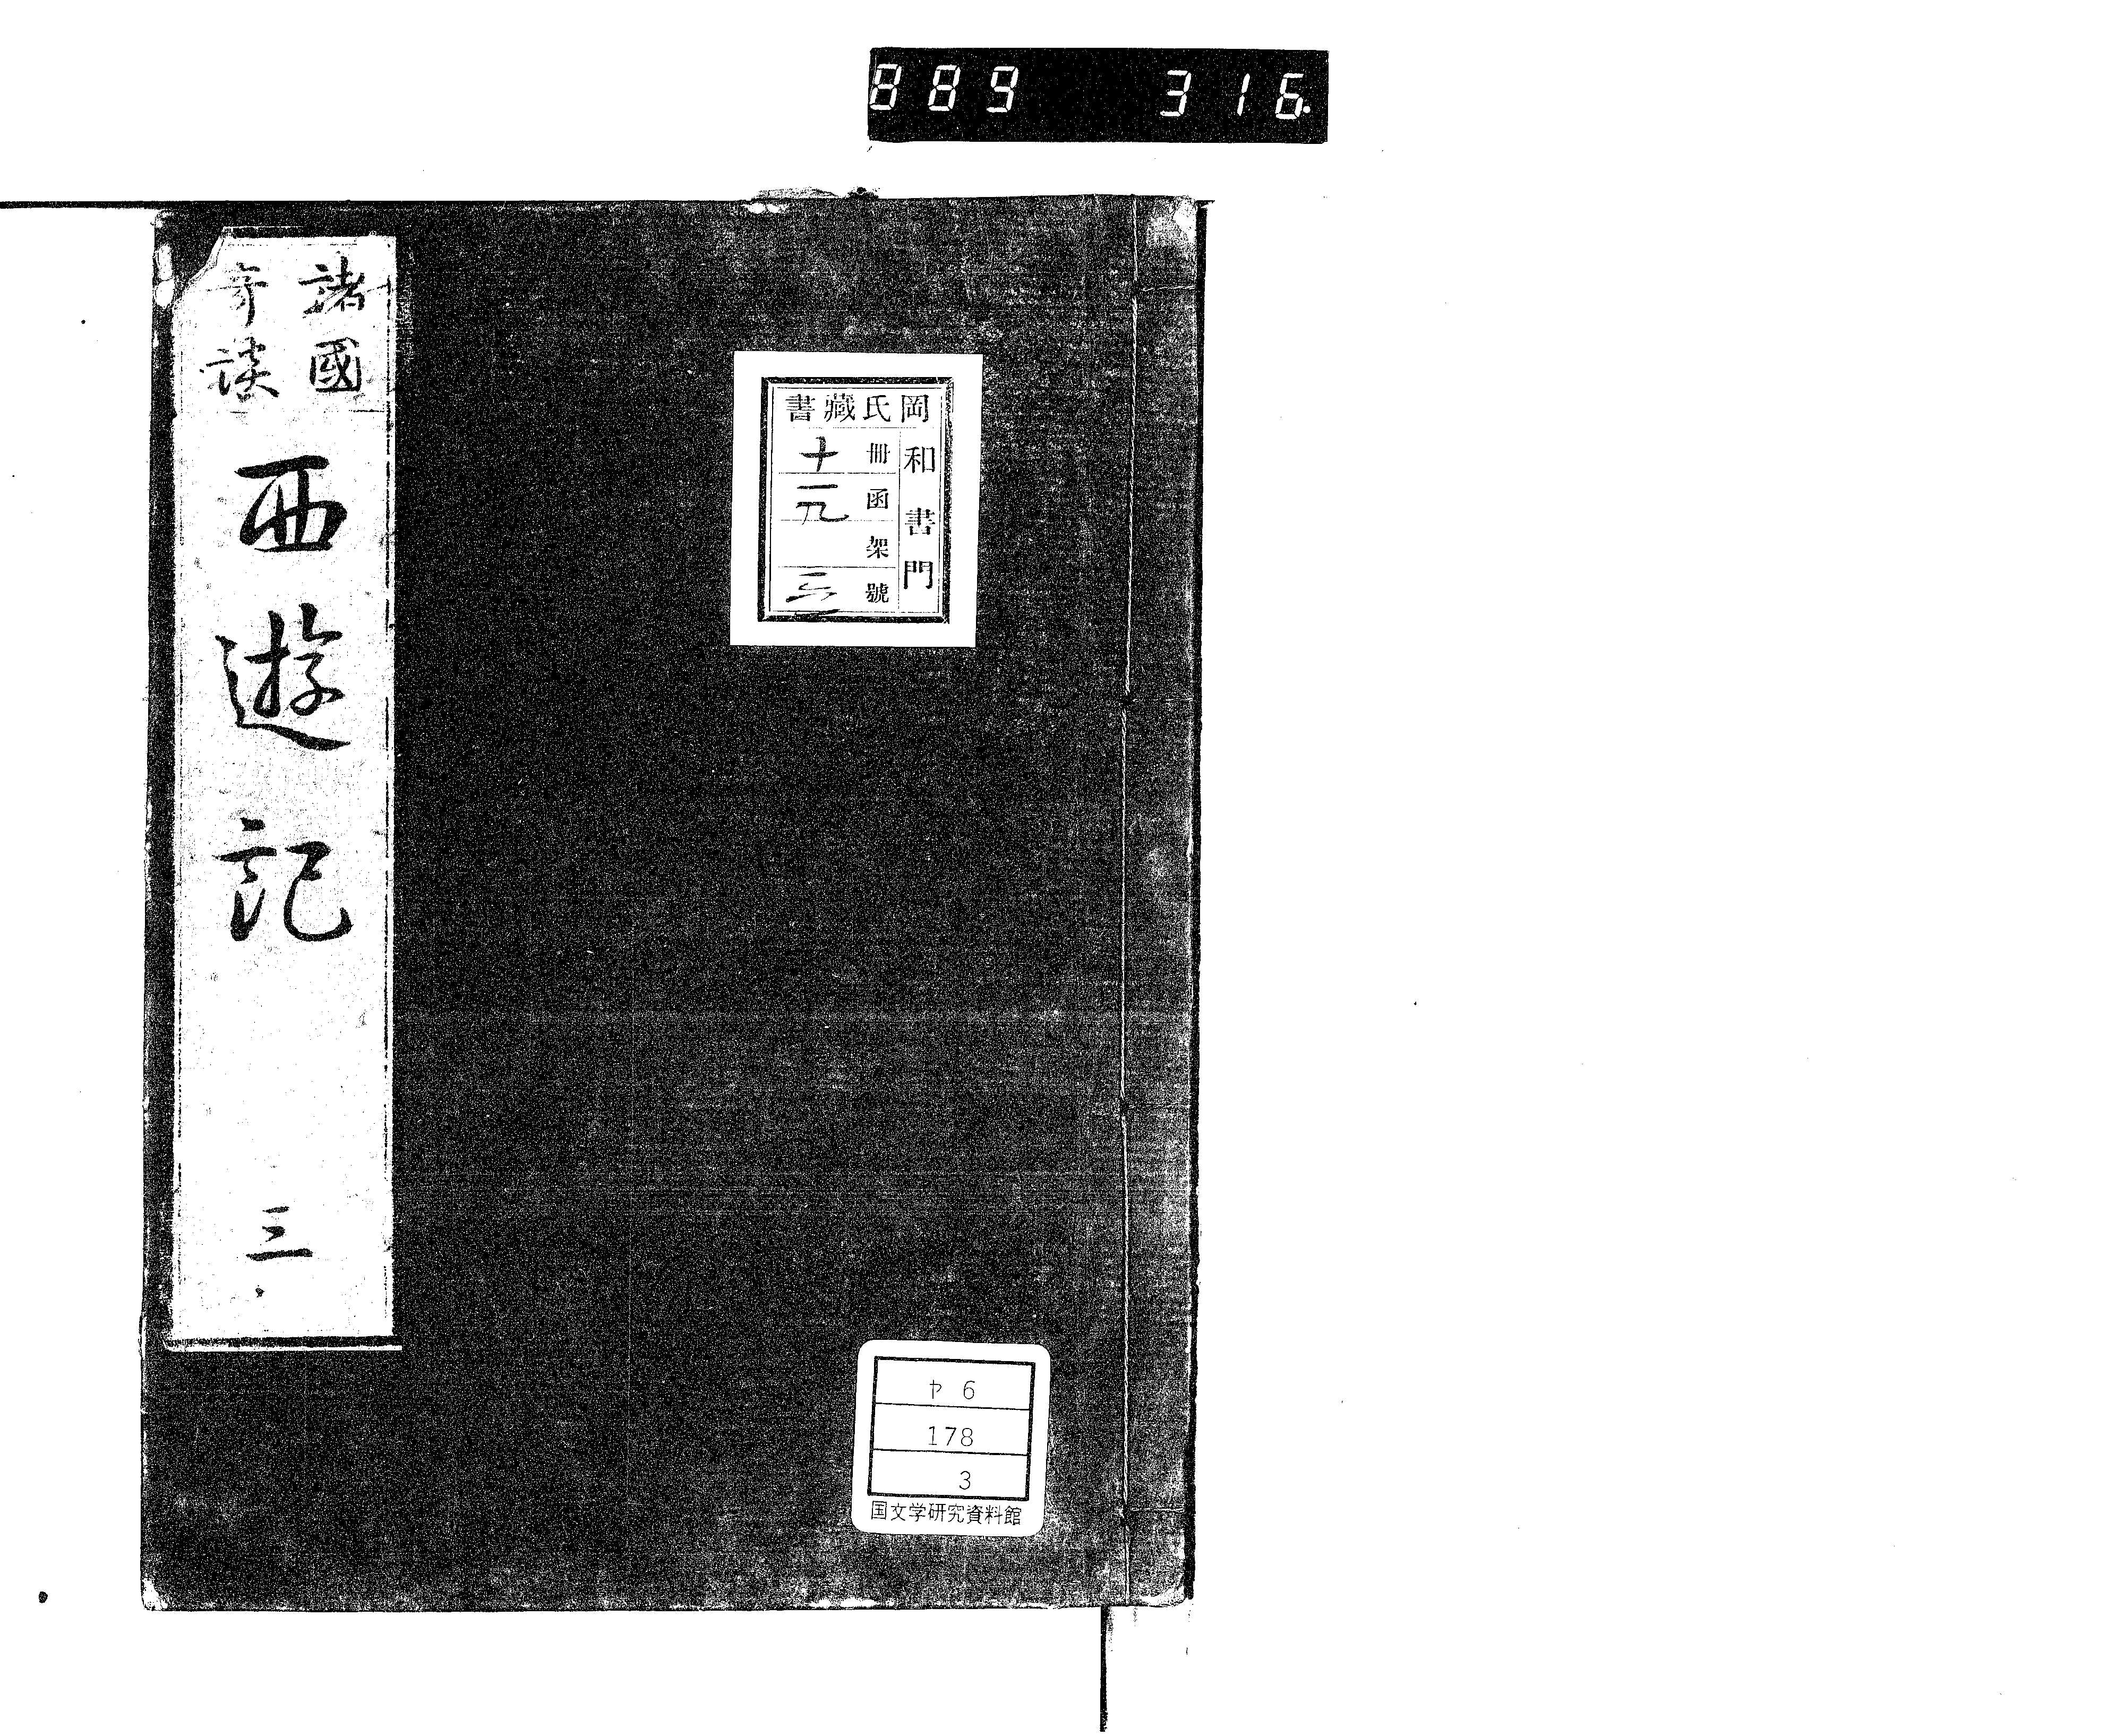 889 316.
諸國
奇談
西遊記
三
岡氏藏書
和書門
冊 十
函
架
號
ヤ 6
178
3
国文学研究資料館